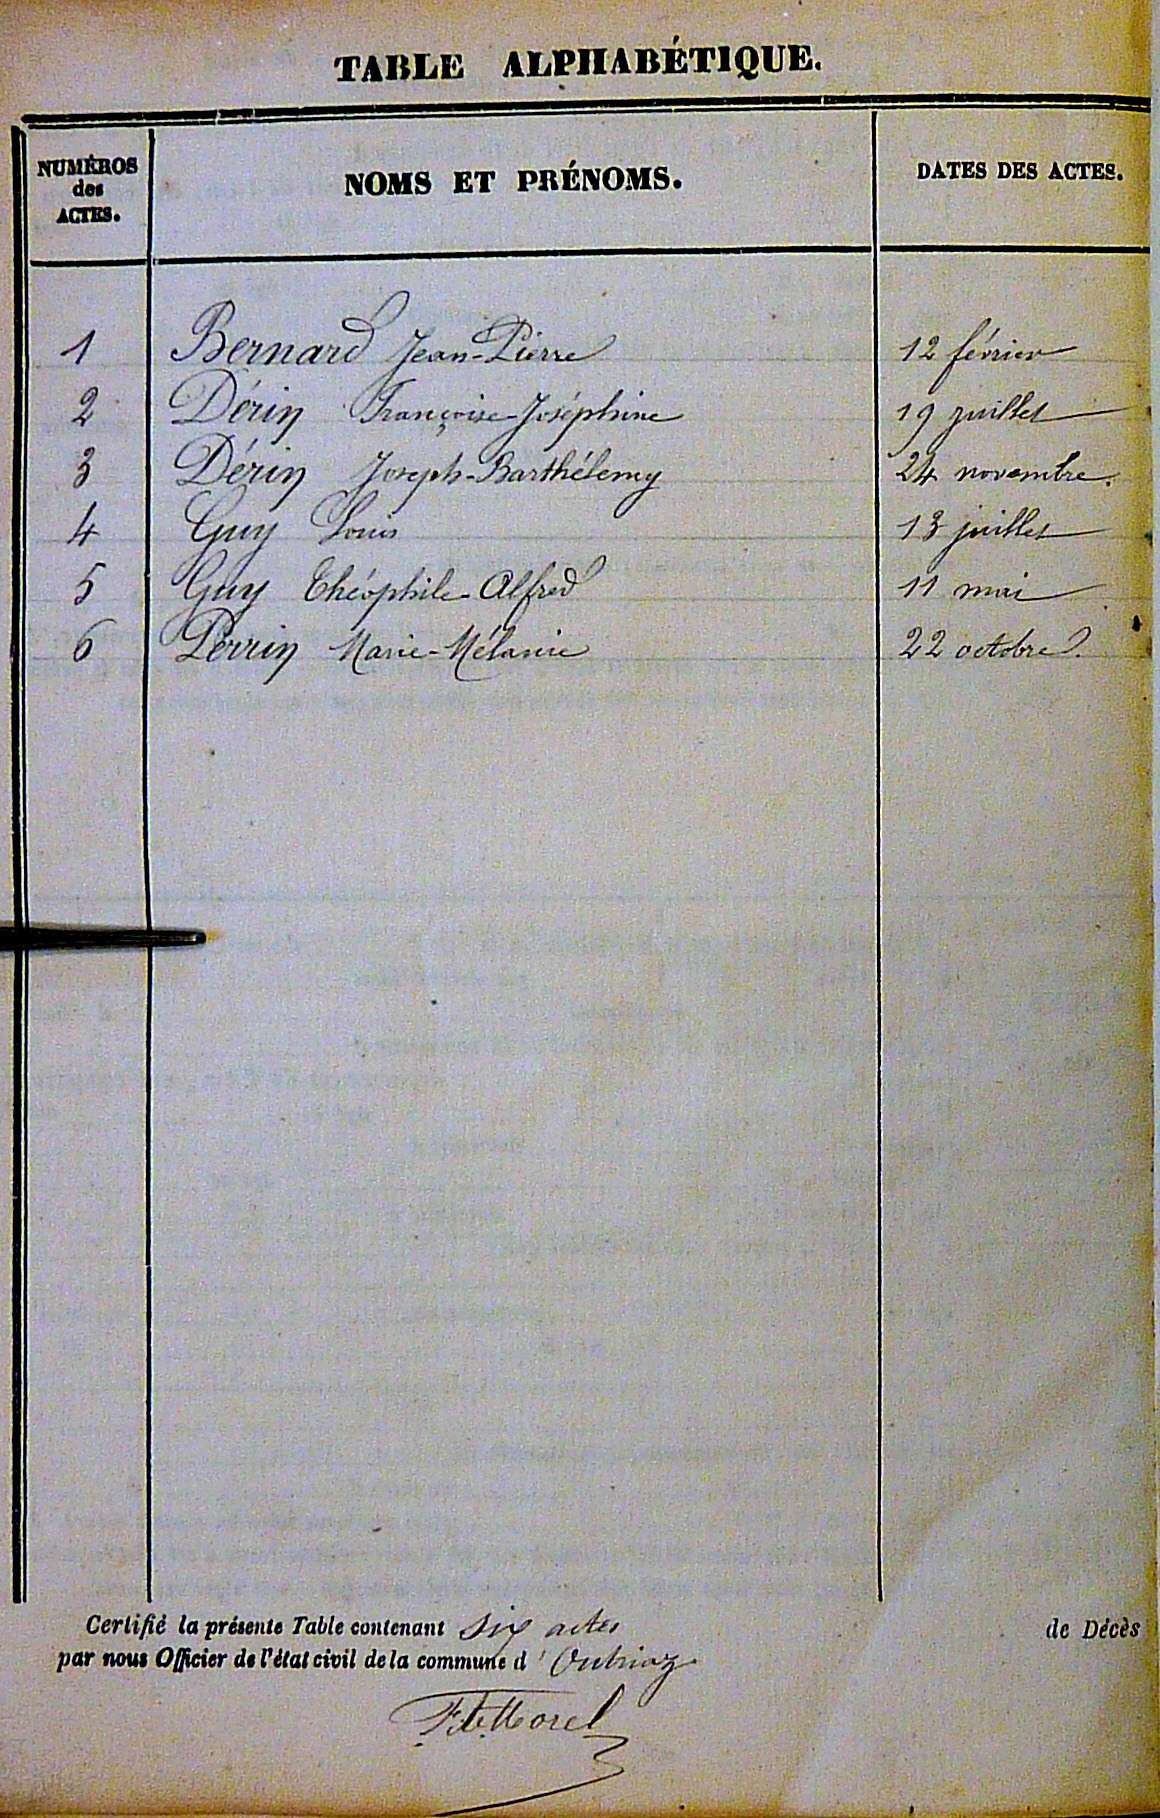 TABLE ALPHABÉTIQUE.
NUMÉROS des ACTES. NOMS ET PRÉNOMS. DATES DES ACTES.
1 Bernard Jean-Pierre 12 février
2 Dérin Françoise-Joséphine 19 juillet
3 Dérin Joseph-Barthélemy 24 novembre.
4 Guy Louis 13 juillet
5 Guy Théophile-Alfred 11 mai
6 Perrin Marie-Mélanie 22 octobre.
Certifié la présente Table contenant six actes de Décès
par nous Officier de l'état civil de la commune d'Outriaz
Morel